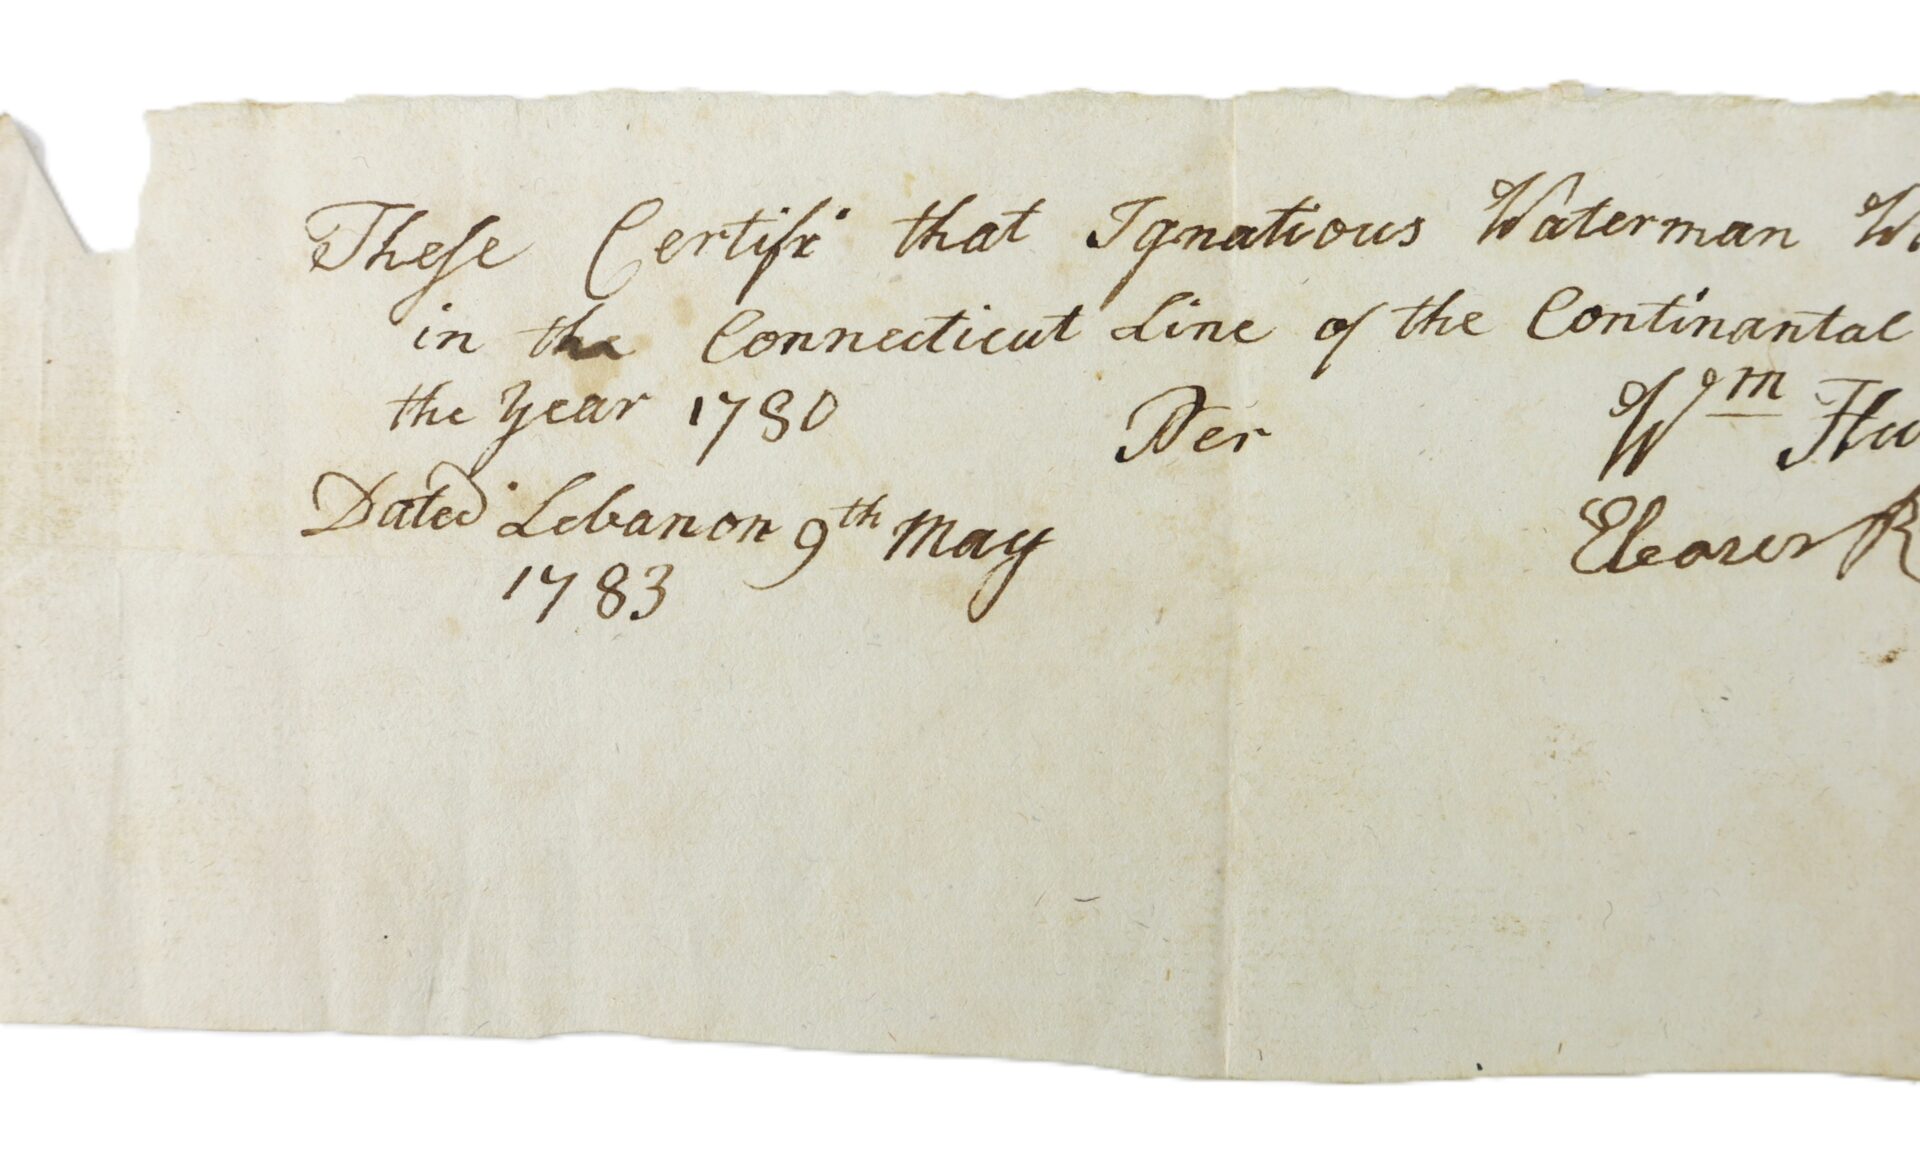 These Certify that Ignatious Waterman
in the Connecticut Line of the Continantal
the Year 1780 Per Wm
Dated Lebanon 9th May Eleazer
1783